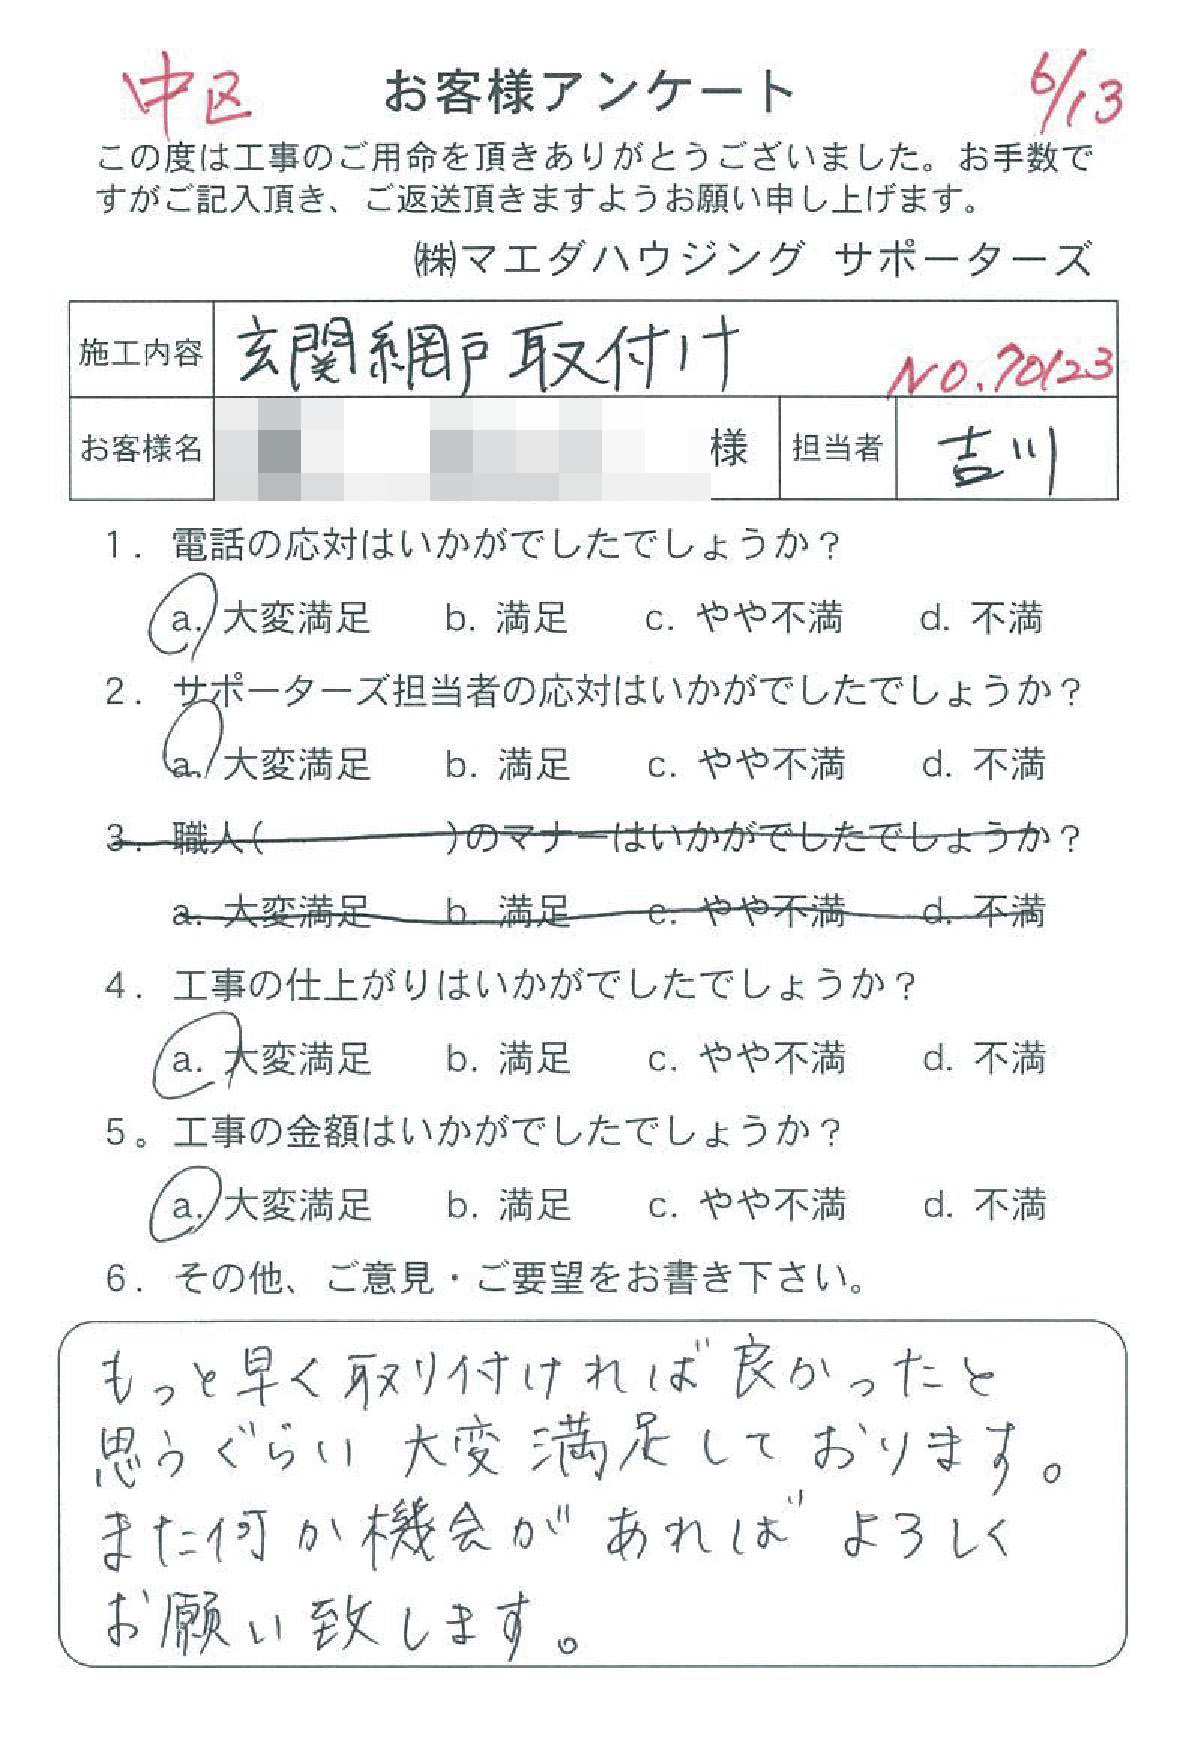 中区 お客様アンケート 6/13
この度は工事のご用命を頂きありがとうございました。お手数で
すがご記入頂き、ご返送頂きますようお願い申し上げます。
㈱マエダハウジング サポーターズ
施工内容 玄関網戸取付け NO.70123
お客様名 様 担当者 吉川
1. 電話の応対はいかがでしたでしょうか？
a. 大変満足 b. 満足 c. やや不満 d. 不満
2. サポーターズ担当者の応対はいかがでしたでしょうか？
a. 大変満足 b. 満足 c. やや不満 d. 不満
3. 職人( )のマナーはいかがでしたでしょうか？
a. 大変満足 b. 満足 c. やや不満 d. 不満
4. 工事の仕上がりはいかがでしたでしょうか？
a. 大変満足 b. 満足 c. やや不満 d. 不満
5。工事の金額はいかがでしたでしょうか？
a. 大変満足 b. 満足 c. やや不満 d. 不満
6. その他、ご意見・ご要望をお書き下さい。
もっと早く取り付ければ良かったと
思うぐらい大変満足しております。
また何か機会があればよろしく
お願い致します。